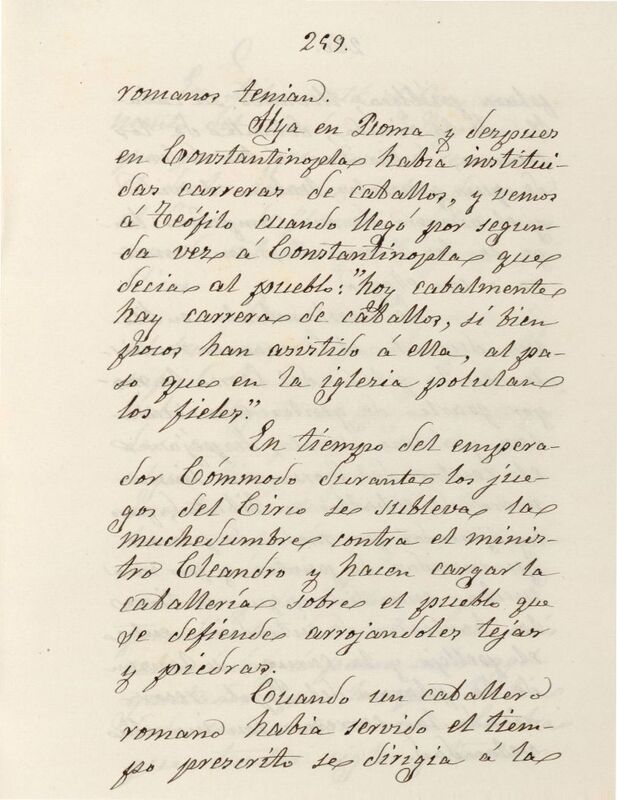 259.
romanos tenian.
Allá en Roma y despues
en Constantinopla habia institui-
das carreras de caballos, y vemos
á Teófilo cuando llegó por segun-
da vez á Constantinopla que
decia al pueblo: "hoy cabalmente
hay carrera de caballos, si bien
pocos han asistido á ella, al pa-
so que en la iglesia polulan
los fieles."
En tiempo del empera-
dor Cómmodo durante los jue-
gos del Circo se subleva la
muchedumbre contra el minis-
tro Cleandro y hacen cargar la
caballería sobre el pueblo que
se defiende arrojandoles tejas
y piedras.
Cuando un caballero
romano habia servido el tiem-
po prescrito se dirigia á la